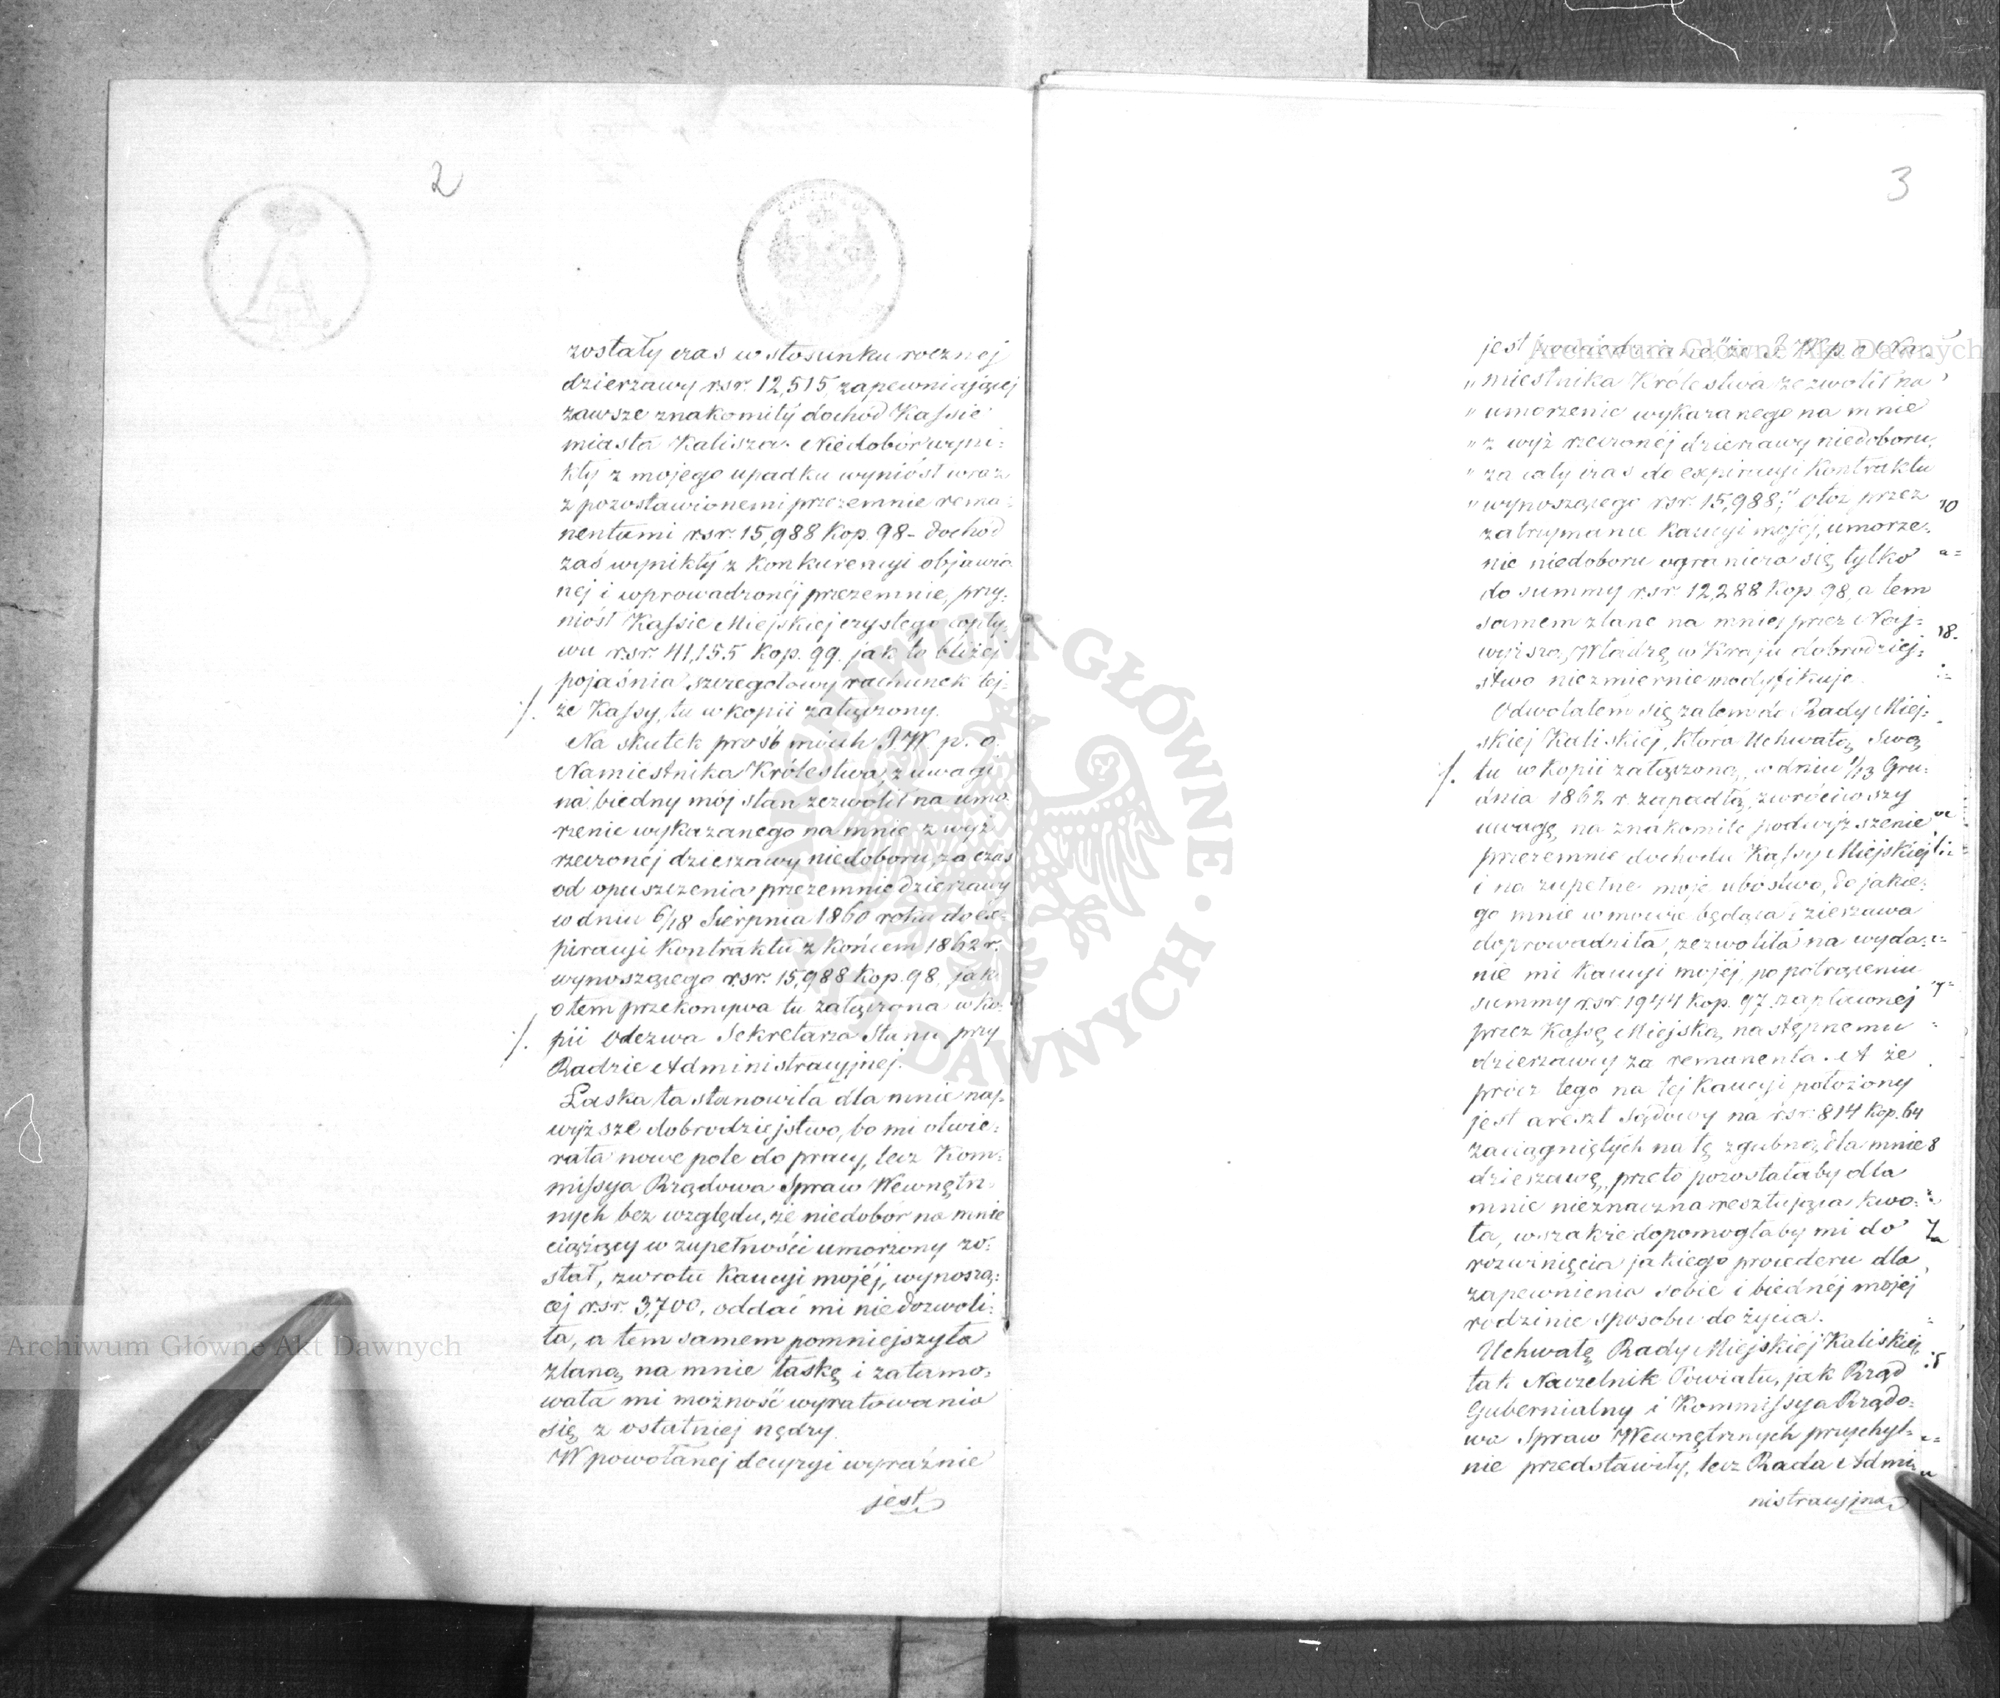 2
zostały czas w stosunku rocznej
dzierzawy rsr. 12,515, zapewniającej
zawsze znakomity dochód Kassie
miasta Kalisza. Niedobór wyni-
kły z mojego upadku wyniósł wraz
z pozostawionemi przezemnie rema-
nentami rsr. 15,988 kop. 98 – dochód
zaś wynikły z konkurencyi objawio-
nej i wprowadzonéj przezemnie, przy-
niósł Kassie Miejskiej czystego wpły-
wu rsr. 41,155 kop. 99. jak to bliżej
pojaśnia szczegółowy rachunek tej-
./. że Kassy, tu w kopii załączony.
Na skutek prośb moich JW p. o.
Namiestnika Królestwa, z uwagi
na biedny mój stan zezwolił na umo-
rzenie wykazanego na mnie z wyż
rzeczonéj dzierzawy niedoboru, za czas
od opuszczenia przezemnie dzierzawy
w dniu 6/18 Sierpnia 1860 roku do ex-
piracyi kontraktu z końcem 1862 r.
wynoszącego rsr. 15,988 kop. 98, jak
o tem przekonywa tu załączona w ko-
./. pii odezwa Sekretarza Stanu przy
Radzie Administracyjnej.
Łaska ta stanowiła dla mnie naj-
wyższe dobrodziejstwo, bo mi otwie-
rała nowe pole do pracy, lecz Kom-
missya Rządowa Spraw Wewnętrz-
nych bez względu, że niedobór na mnie
ciążący w zupełności umorzony zo-
stał, zwrotu kaucyi mojéj, wynoszą-
cej rsr. 3,700, oddać mi nie dozwoli-
ła, a tem samem pomniejszyła
zlaną na mnie łaskę i zatamo-
wała mi możność wyratowania
się z ostatniej nędzy.
W powołanej decyzyi wyraźnie
jest
3
jest powiedziano "że JW p o Na-
" miestnika Królestwa zezwolił na
" umorzenie wykazanego na mnie
" z wyż rzeczonéj dzierzawy niedoboru,
" za cały czas do expiracyi kontraktu
" wynoszącego rsr. 15,988;" otóż przez
zatrzymanie kaucyi mojéj, umorze-
nie niedoboru ogranicza się tylko
do summy rsr. 12,288 kop 98, a tem
samem zlane na mnie przez Naj-
wyższą Władzę w Kraju dobrodziej-
stwo niezmiernie modyfikuje.
Odwołałem się zatem do Rady Miej-
skiej Kaliskiej, która Uchwałą swą
./. tu w kopii załączoną, w dniu 1/13 Gru-
dnia 1862 r. zapadłą, zwróciwszy
uwagę na znakomite podwyższenie
przezemnie dochodu Kassy Miejskiej
i na zupełne moje ubóstwo, do jakie-
go mnie w mowie będąca dzierzawa
doprowadziła, zezwoliła na wyda-
nie mi kaucyi mojéj, po potrąceniu
summy rsr 1944 kop. 97. zapłaconej
przez Kassę Miejską następnemu
dzierzawcy za remanenta. A że
prócz tego na tej kaucyi położony
jest areszt sądowy na rsr 814 kop. 64
zaciągniętych na tę zgubną dla mnie
dzierzawę, przeto pozostałaby dla
mnie nieznaczna resztująca kwo-
ta, wszakże dopomogłaby mi do
rozwinięcia jakiego procederu dla
zapewnienia sobie i biednéj mojej
rodzinie sposobu do życia.
Uchwałę Rady Miejskiéj Kaliskiej,
tak Naczelnik Powiatu, jak Rząd
Gubernialny i Kommissya Rządo-
wa Spraw Wewnętrznych przychyl-
nie przedstawiły, lecz Rada Admi-
nistracyjna
Archiwum Główne Akt Dawnych
Archiwum Główne Akt Dawnych
ARCHIWUM GŁÓWNE AKT DAWNYCH